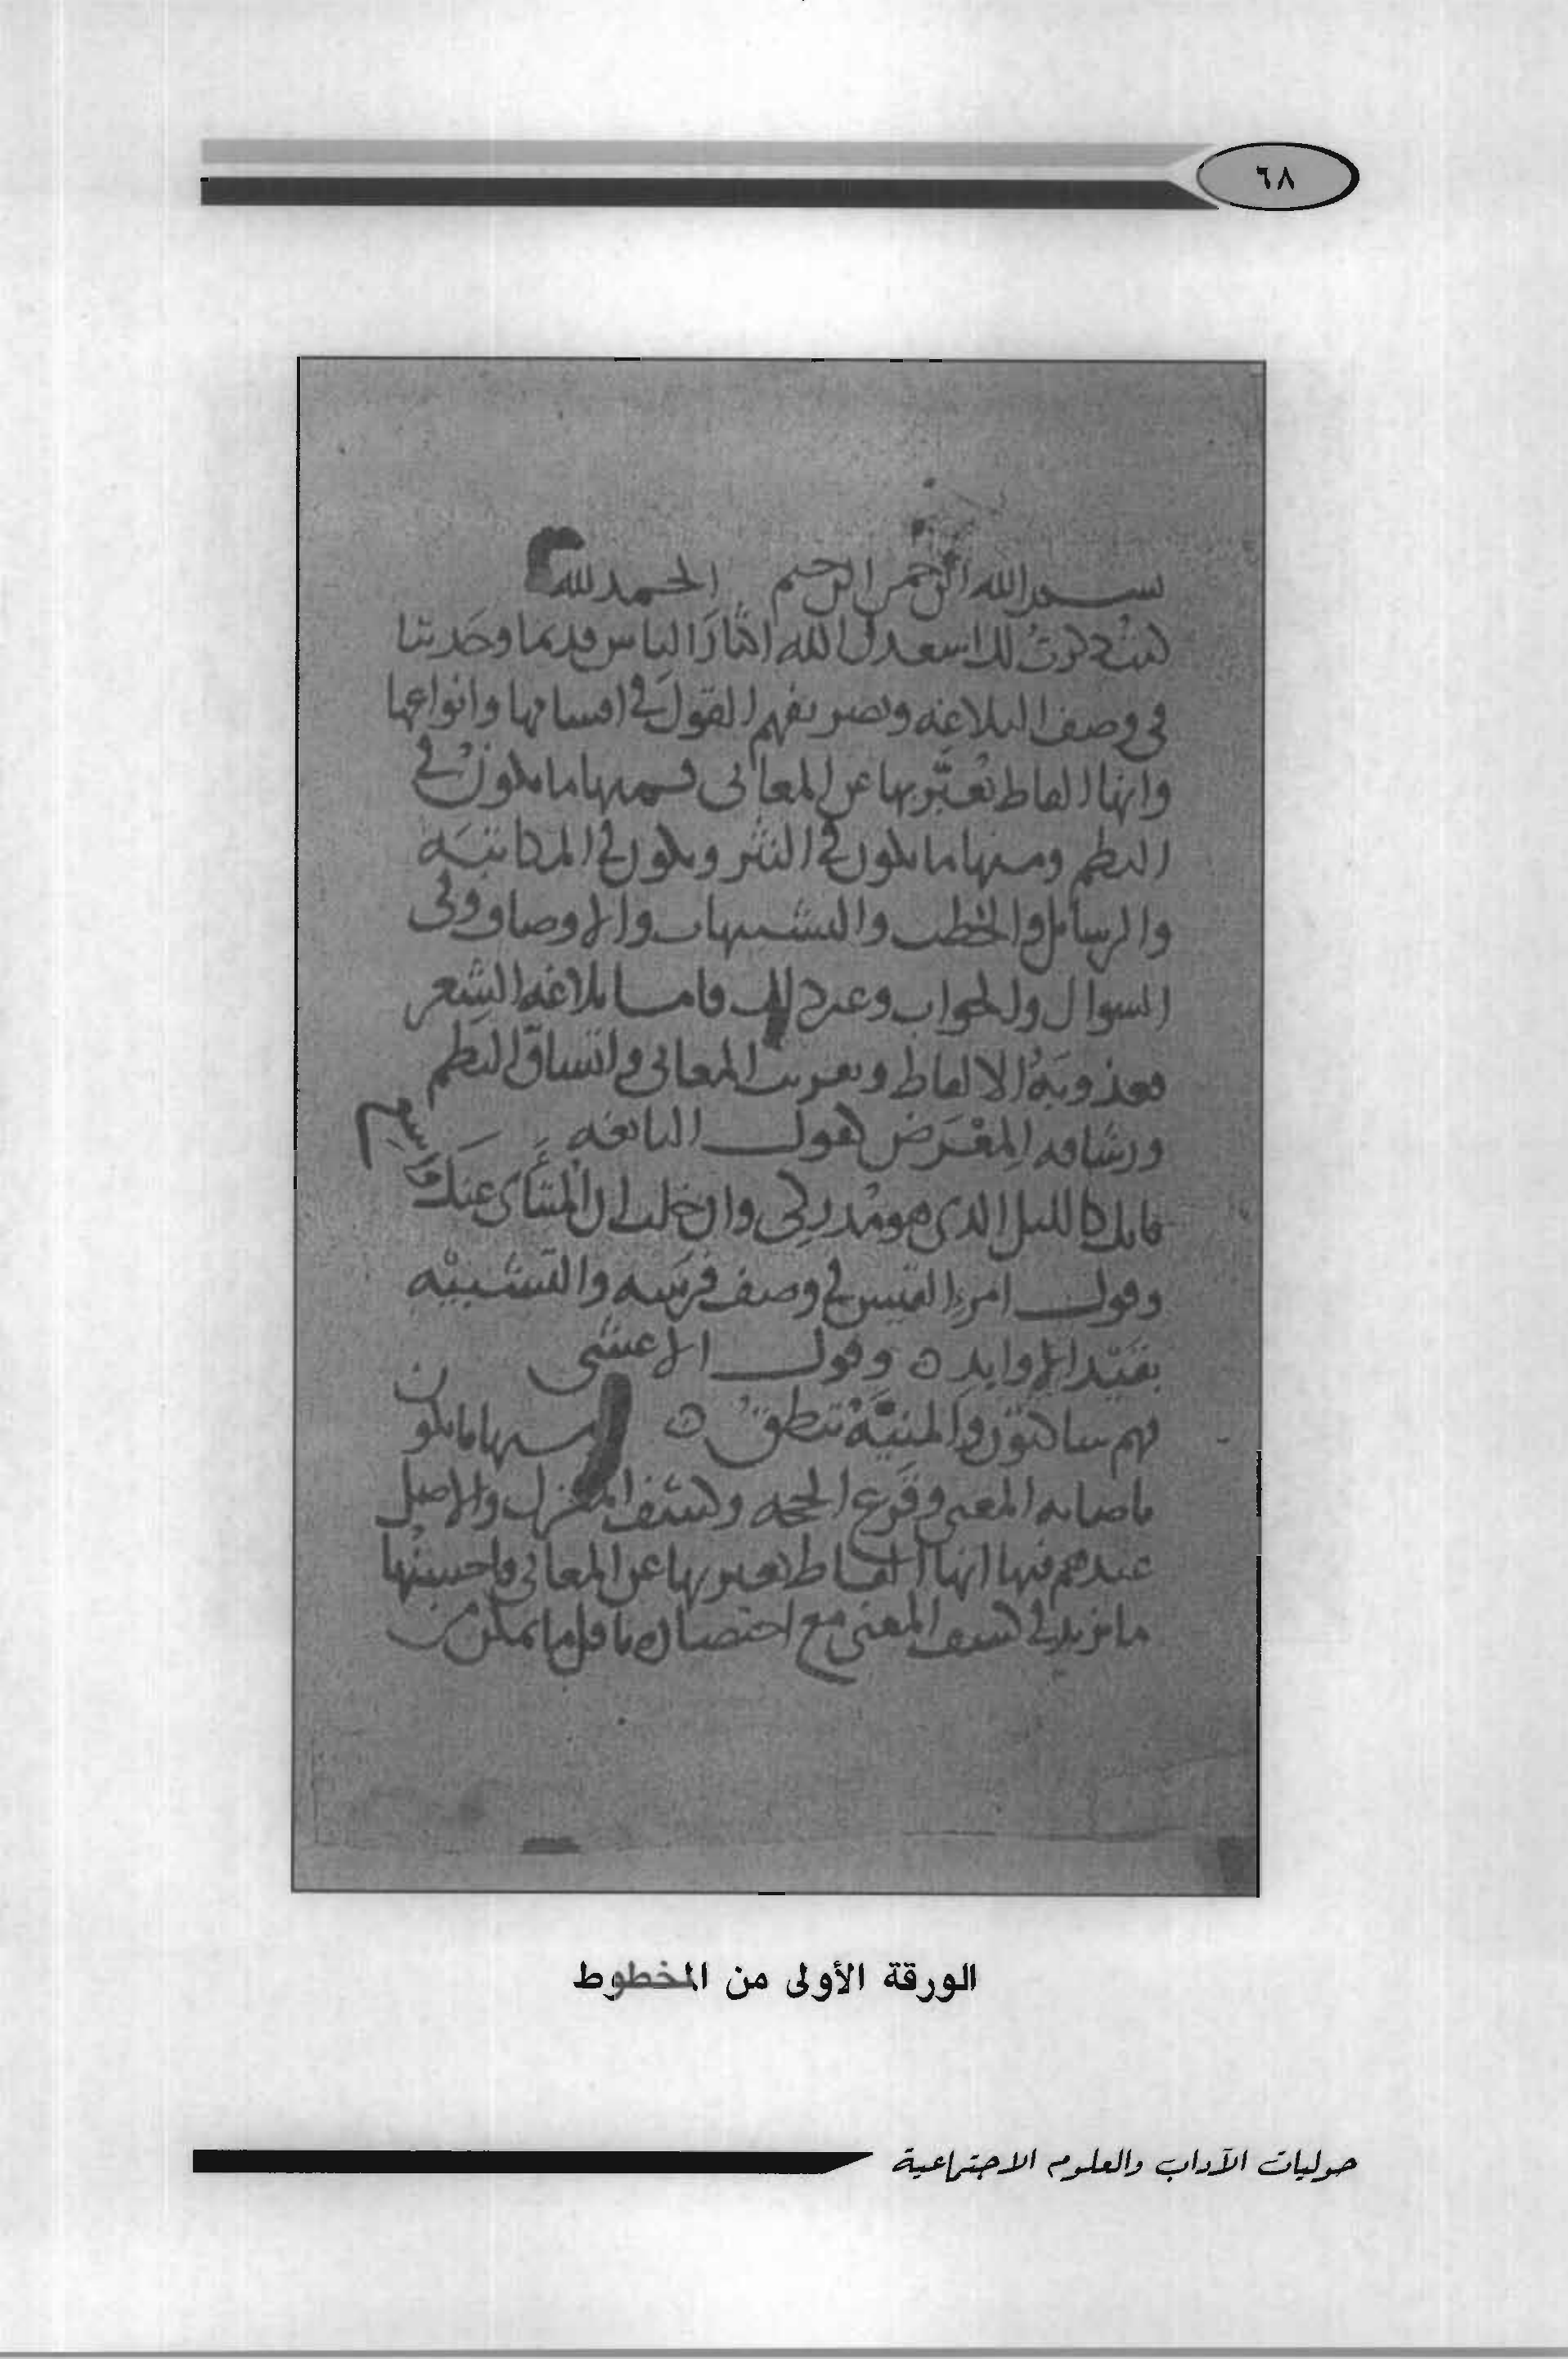 ٦٨
بسم الله الرحمن الرحيم الحمد لله
كنت ذكرت لك اسعدك الله اكثار الناس قديما وحديثا
في وصف البلاغه وتصريفهم القول في اقسامها وانواعها
وانها الفاظ يعبر بها عن المعاني فمنها ما يكون في
النظم ومنها ما يكون في النثر ويكون في المكاتبه
والرسائل والخطب والتشبيهات والاوصاف وفي
السوال والجواب وغير ذلك فاما بلاغه الشعر
فعذوبة الالفاظ وتقريب المعاني واتساق النظم
ورشاقه المعرض كقول النابغه
فانك كالليل الذي هو مدركي وان خلت ان المنتأى عنك واسع
وقول امرء القيس في وصف فرسه والتشبيه
بقيد الاوابد ه وقول الاعشى
فهم ساكتون والمنية تنطق ه ومنها ما يكون
باصابه المعنى وقرع الحجه وكشف والاصل
عندهم فيها انها الفاظ يعبر بها عن المعاني واحسنها
ما نريد في كشف المعنى مع اختصاره باقل ما يمكن من
الورقة الأولى من المخطوط
حوليات الآداب والعلوم الاجتماعية